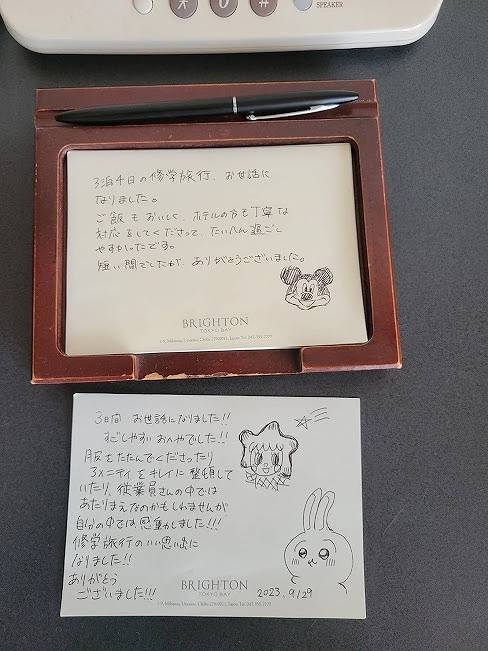 SPEAKER
3泊4日の修学旅行、お世話に
なりました。
ご飯もおいしく、ホテルの方も丁寧な
対応をしてくださって、たいへん過ごし
やすかったです。
短い間でしたが、ありがとうございました。
BRIGHTON
TOKYO BAY
3日間 お世話になりました!!
すごしやすいおへやでした!!
服をたたんでくださったり
アメニティをキレイに整頓して
いたり、従業員さんの中では
あたりまえなのかもしれませんが
自分の中では感動しました!!!
修学旅行のいい思い出に
なりました!!
ありがとう
ございました!!!
BRIGHTON
TOKYO BAY
2023.9/29